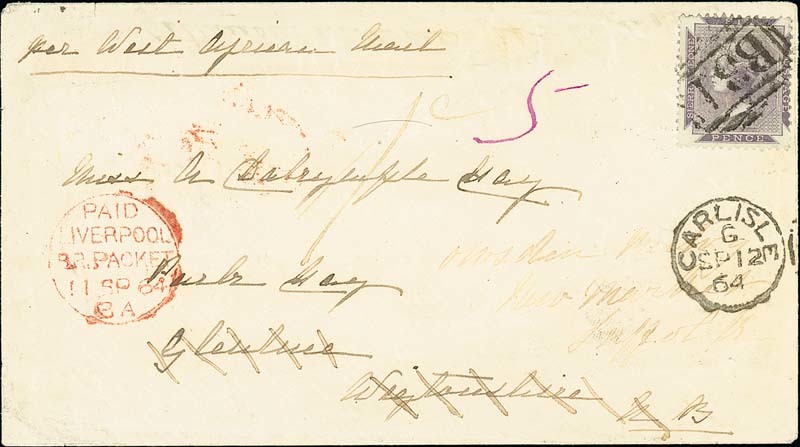 per West African Mail
SIERRA LEONE
POSTAGE
PENCE
B31
5
Miss A Dalrymple Hay
PAID
LIVERPOOL
BR. PACKET
11 SP 64
CARLISLE
G
SP 12
64
Park Hay
Glenluce
Wigtonshire
N B